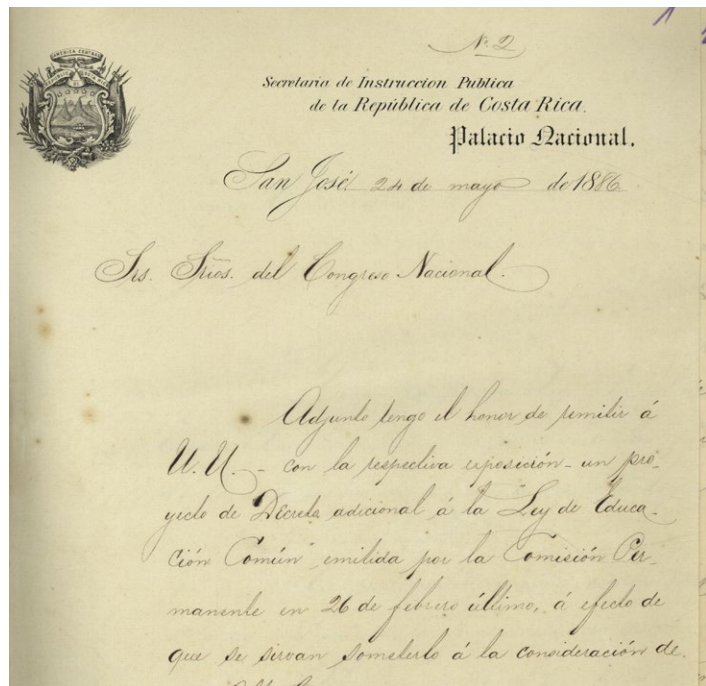 Nº 2
AMERICA CENTRAL
REPUBLICA DE COSTA RICA
Secretaria de Instruccion Publica
de la República de Costa Rica.
Palacio Nacional.
San José 24 de mayo de 1886
Srs. Srios. del Congreso Nacional.
Adjunto tengo el honor de remitir á
U.U. - con la respectiva exposición - un pro-
yecto de Decreto adicional á la Ley de Educa-
ción Común, emitida por la Comisión Per-
manente en 26 de febrero último, á efecto de
que se sirvan someterlo á la consideración de